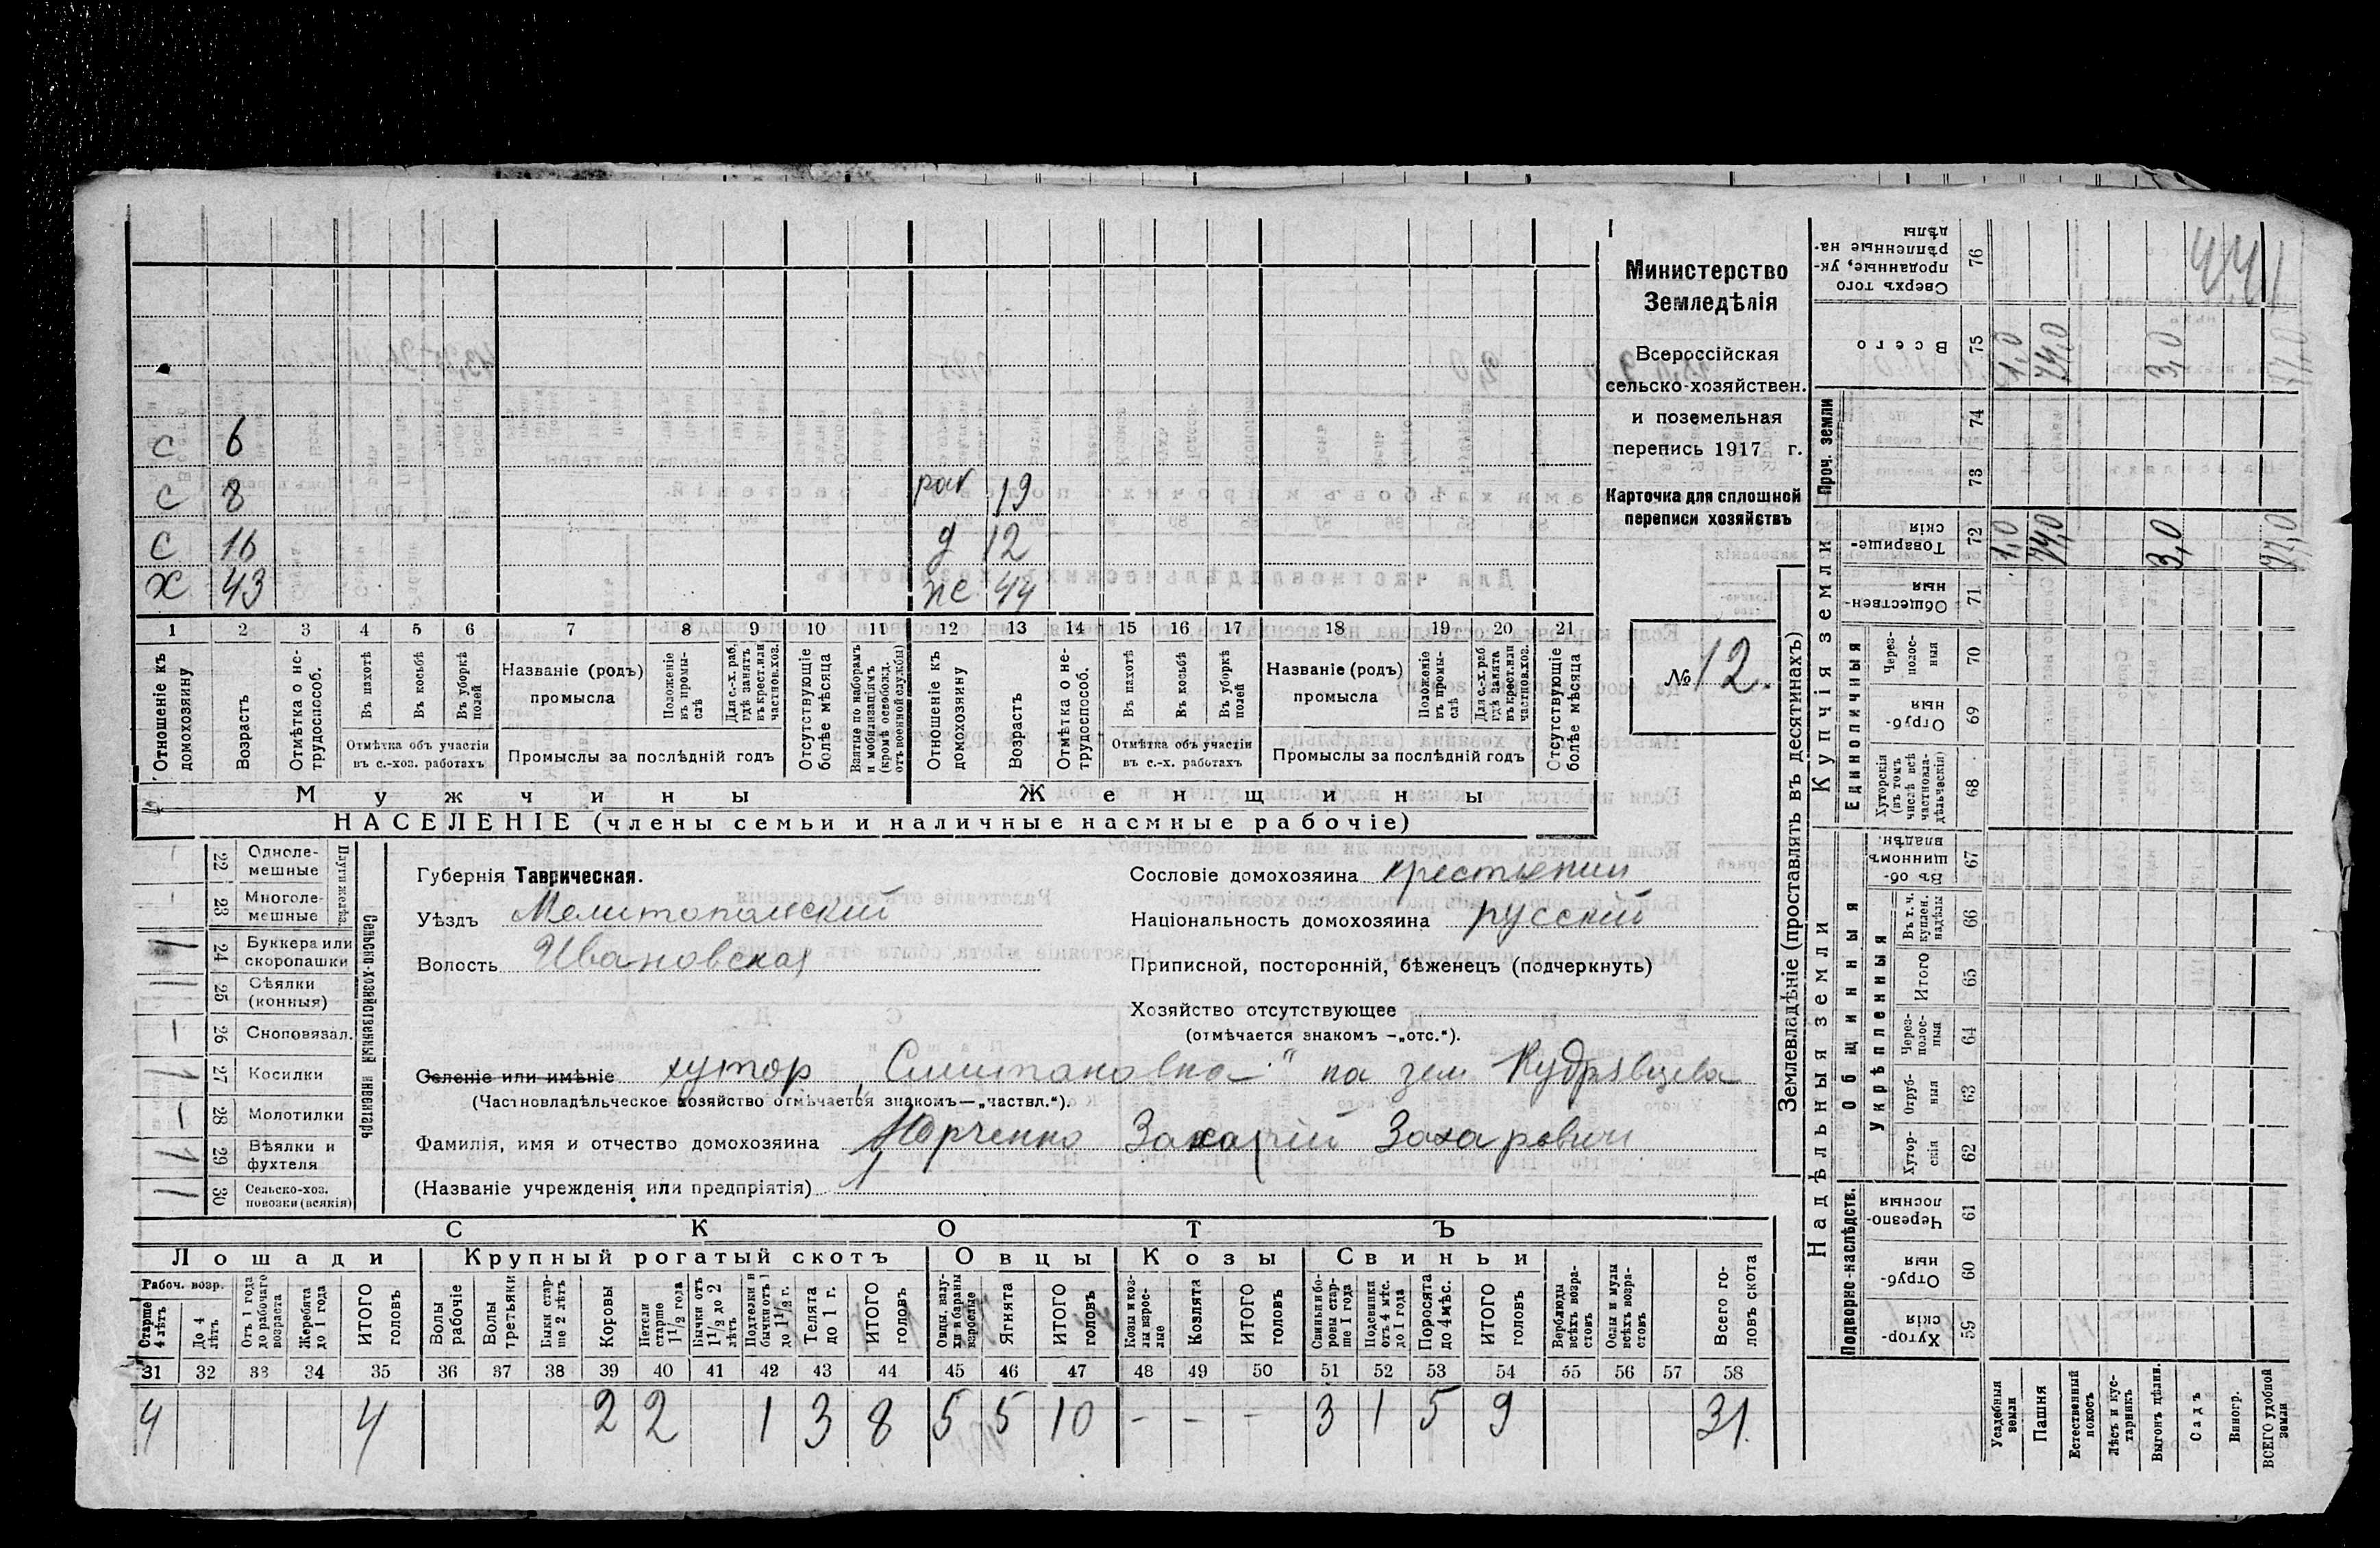 Министерство
Земледѣлія
Всероссійская
сельско-хозяйствен.
и поземельная
перепись 1917 г.
Карточка для сплошной
переписи хозяйствъ
№ 12.
с 6
с 8
с 16
х 43
19
д 12
же 44
1 2 3 4 5 6 7 8 9 10 11 12 13 14 15 16 17 18 19 20 21
Отношеніе къ домохозяину
Возрастъ
Отмѣтка о нетрудоспособ.
Въ пахотѣ
Въ косьбѣ
Въ уборкѣ полей
Отмѣтка объ участіи въ с.-хоз. работахъ
Названіе (родъ) промысла
Положеніе въ промыслѣ
Для с.-х. раб. гдѣ занятъ въ крест. или частнов. хоз.
Промыслы за послѣдній годъ
Отсутствующіе болѣе мѣсяца
Взятые по наборамъ и мобилизаціямъ (кромѣ освобожд. отъ военной службы)
Отношеніе къ домохозяину
Возрастъ
Отмѣтка о нетрудоспособ.
Въ пахотѣ
Въ косьбѣ
Въ уборкѣ полей
Отмѣтка объ участіи въ с.-х. работахъ
Названіе (родъ) промысла
Положеніе въ промыслѣ
Для с.-х. раб. гдѣ занята въ крест. или частнов. хоз.
Промыслы за послѣдній годъ
Отсутствующіе болѣе мѣсяца
Мужчины
Женщины
НАСЕЛЕНІЕ (члены семьи и наличные наемные рабочіе)
22 Однолемешные
23 Многолемешные
Плуги желѣз.
24 Буккера или скоропашки
25 Сѣялки (конныя)
26 Сноповязал.
27 Косилки
28 Молотилки
29 Вѣялки и фухтеля
30 Сельско-хоз. повозки (всякія)
Сельско-хозяйственный инвентарь
Губернія Таврическая.
Уѣздъ Мелитопольский
Волость Ивановская
Сословіе домохозяина крестьянин
Національность домохозяина русский
Приписной, посторонній, бѣженецъ (подчеркнуть)
Хозяйство отсутствующее
(отмѣчается знакомъ –„отс.“).
Селеніе или имѣніе хутор на зем Кудрявцева
(Частновладѣльческое хозяйство отмѣчается знакомъ—„частвл.“).
Фамилія, имя и отчество домохозяина Юрченко Захарий Захарович
(Названіе учрежденія или предпріятія)
СКОТЪ
Лошади
Крупный рогатый скотъ
Овцы
Козы
Свиньи
Рабоч. возр.
Старше 4 лѣтъ
До 4 лѣтъ
Отъ 1 года до рабочаго возраста
Жеребята до 1 года
ИТОГО головъ
Волы рабочіе
Волы третьяки
Быки старше 2 лѣтъ
Коровы
Нетели старше 1 1/2 года
Бычки отъ 1 1/2 до 2 лѣтъ
Подтелки и бычки отъ 1 до 1 1/2 г.
Телята до 1 г.
ИТОГО головъ
Овцы, валухи и бараны взрослые
Ягнята
ИТОГО головъ
Козы и козлы взрослые
Козлята
ИТОГО головъ
Свиньи и боровы старше 1 года
Подсвинки отъ 4 мѣс. до 1 года
Поросята до 4 мѣс.
ИТОГО головъ
Верблюды всѣхъ возрастовъ
Ослы и мулы всѣхъ возрастовъ
Всего головъ скота
31 32 33 34 35 36 37 38 39 40 41 42 43 44 45 46 47 48 49 50 51 52 53 54 55 56 57 58
4 4 2 2 1 3 8 5 5 10 - - - 3 1 5 9 31.
Землевладѣніе (проставлять въ десятинахъ)
Сверхъ того проданные, укрѣпленные надѣлы 76
Всего 75 1,0 74,0 3,0
Проч. земли
74
73
Купчія земли
Товарищескія 72 1,0 74,0 3,0 77,0
Общественныя 71
Единоличныя
Черезполосныя 70
Отрубныя 69
Хуторскія (въ томъ числѣ всѣ частновладѣльческія) 68
Надѣльныя земли
Общинныя
Въ общинномъ владѣн. 67
Укрѣпленныя
Въ т. ч. куплен. надѣлы 66
Итого 65
Черезполосныя 64
Отрубныя 63
Хуторскія 62
Подворно-наслѣдств.
Черезполосныя 61
Отрубныя 60
Хуторскія 59
Усадебныя земли
Пашня
Естественный покосъ
Лѣсъ и кустарникъ
Выгонъ цѣлин.
Садъ
Виногр.
ВСЕГО удобной земли